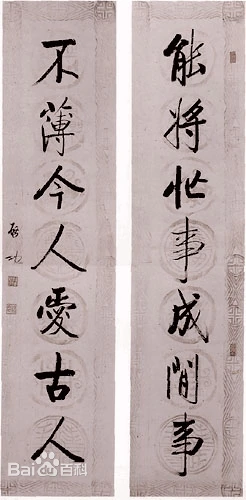 能将忙事成閒事
不薄今人愛古人
啓功
Bai百科